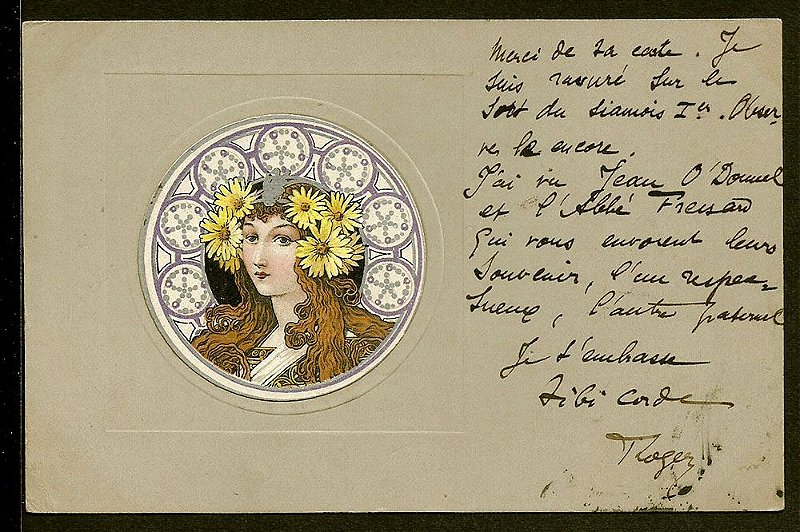 Merci de ta carte. Je
suis rassuré sur le
sort du Siamois Ier. Obser-
ve le encore.
J'ai vu Jean O'Donnel
et l'Abbé Freisard
qui vous envoient leurs
Souvenir, l'un respec-
tueux, l'autre paternel
Je t'embrasse
tibi corde
Roger